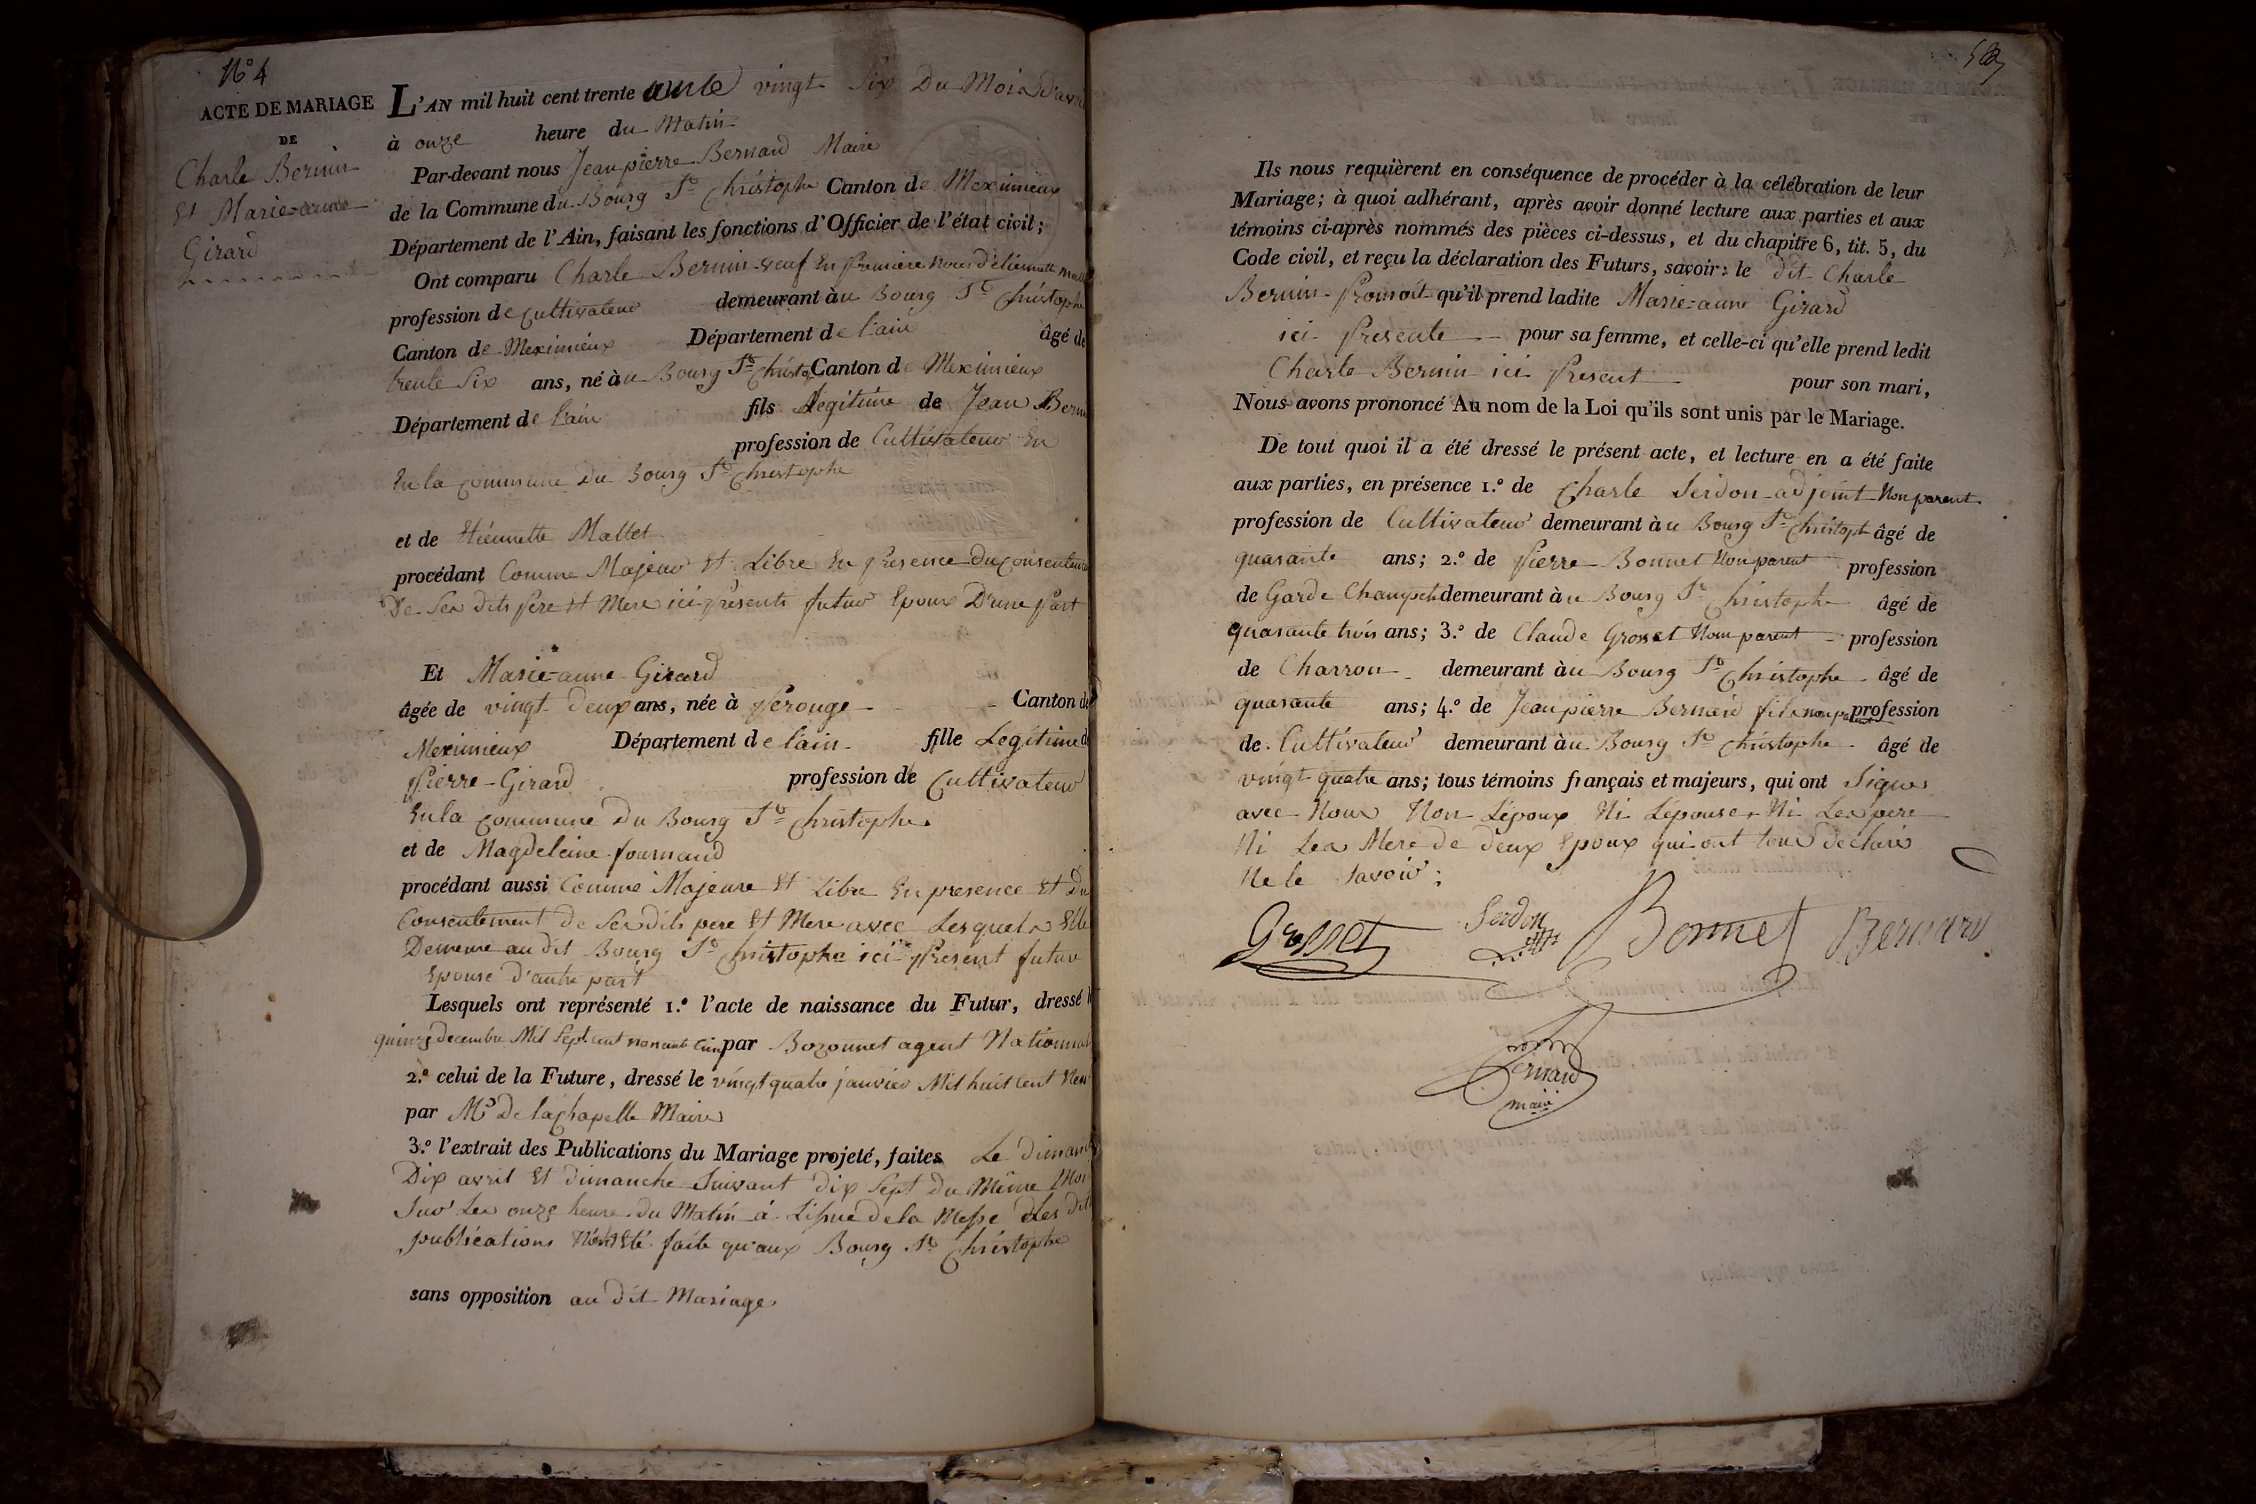 N° 4
ACTE DE MARIAGE
DE
Charle Bernin
Et Marie-anne
Girard
L'AN mil huit cent trente vingt Six Du Mois d'avril
à onze heure du Matin
Par-devant nous Jean pierre Bernard Maire
de la Commune du Bourg St Christophe Canton de Meximieux
Département de l'Ain, faisant les fonctions d'Officier de l'état civil;
Ont comparu Charle Bernin veuf En Premiere Noces d'Etiennette
profession de Cultivateur demeurant àu Bourg St Christophe
Canton de Meximieux Département de l'ain âgé de
trente Six ans, né àu Bourg St Christo Canton de Meximieux
Département de l'ain fils Legitime de Jean Bernin
profession de Cultivateur En
En la Commune Du Bourg St Christophe
et de Etiennette Mallet
procédant Comme Majeur Et Libre En Presence Du Consentement
De Ses dits Pere Et Mere ici Présents futur Epoux D'une Part
Et Marie-anne Girard
âgée de vingt Deux ans, née à Pérouge Canton de
Meximieux Département de l'ain fille Légitime de
Pierre-Girard profession de Cultivateur
En la Commune Du Bourg St Christophe
et de Magdeleine fournand
procédant aussi Comme Majeure Et Libre En presence Et Du
Consentement de Ses dits pere Et Mere avec Lesquels Elle
Demeure au dit Bourg St Christophe ici Présent future
Epouse d'autre part
Lesquels ont représenté 1.º l'acte de naissance du Futur, dressé le
quinze decembre Mil Sept cent nonante Cinq par Bozonnet agent National
2.º celui de la Future, dressé le vingt quatre janvier Mil huit Cent Neuf
par Mr De lachapelle Maire
3.º l'extrait des Publications du Mariage projeté, faites Le dimanche
Dix avril Et dimanche Suivant dix Sept Du Même Mois
Sur Les onze heure du Matin à L'issue de la Messe Les dits
publications N'ont Eté faite qu'aux Bourg St Christophe
sans opposition au Dit Mariage
Ils nous requièrent en conséquence de procéder à la célébration de leur
Mariage; à quoi adhérant, après avoir donné lecture aux parties et aux
témoins ci-après nommés des pièces ci-dessus, et du chapitre 6, tit. 5, du
Code civil, et reçu la déclaration des Futurs, savoir: le dit Charle
Bernin Promoit qu'il prend ladite Marie-anne Girard
ici Presente pour sa femme, et celle-ci qu'elle prend ledit
Charle Bernin ici Present pour son mari,
Nous avons prononcé Au nom de la Loi qu'ils sont unis par le Mariage.
De tout quoi il a été dressé le présent acte, et lecture en a été faite
aux parties, en présence 1.º de Charle Serdon adjoint Non parent
profession de Cultivateur demeurant àu Bourg St Christoph âgé de
quarante ans; 2.º de Pierre Bonnet Non parent profession
de Garde Champetr demeurant àu Bourg St Christophe âgé de
quarante trois ans; 3.º de Claude Grosset Non parent profession
de Charron demeurant àu Bourg St Christophe âgé de
quarante ans; 4.º de Jean pierre Bernard fils non parent profession
de Cultivateur demeurant àu Bourg St Christophe âgé de
vingt quatre ans; tous témoins français et majeurs, qui ont Signes
avec Nous Non Lépoux Ni Lépouse Ni Les pere
Ni Les Mere de deux Epoux qui ont tous déclaré
Ne le Savoir;
Grosset Serdon Bonnet Bernard
Bernard
maire